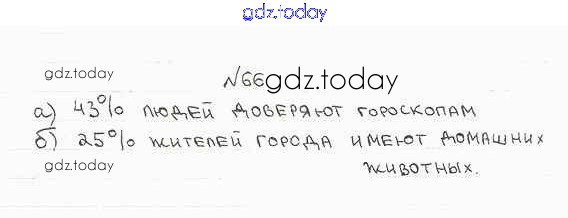 gdz.today
gdz.today
№66 gdz.today
а) 43% людей доверяют гороскопам
б) 25% жителей города имеют домашних
gdz.today
животных.